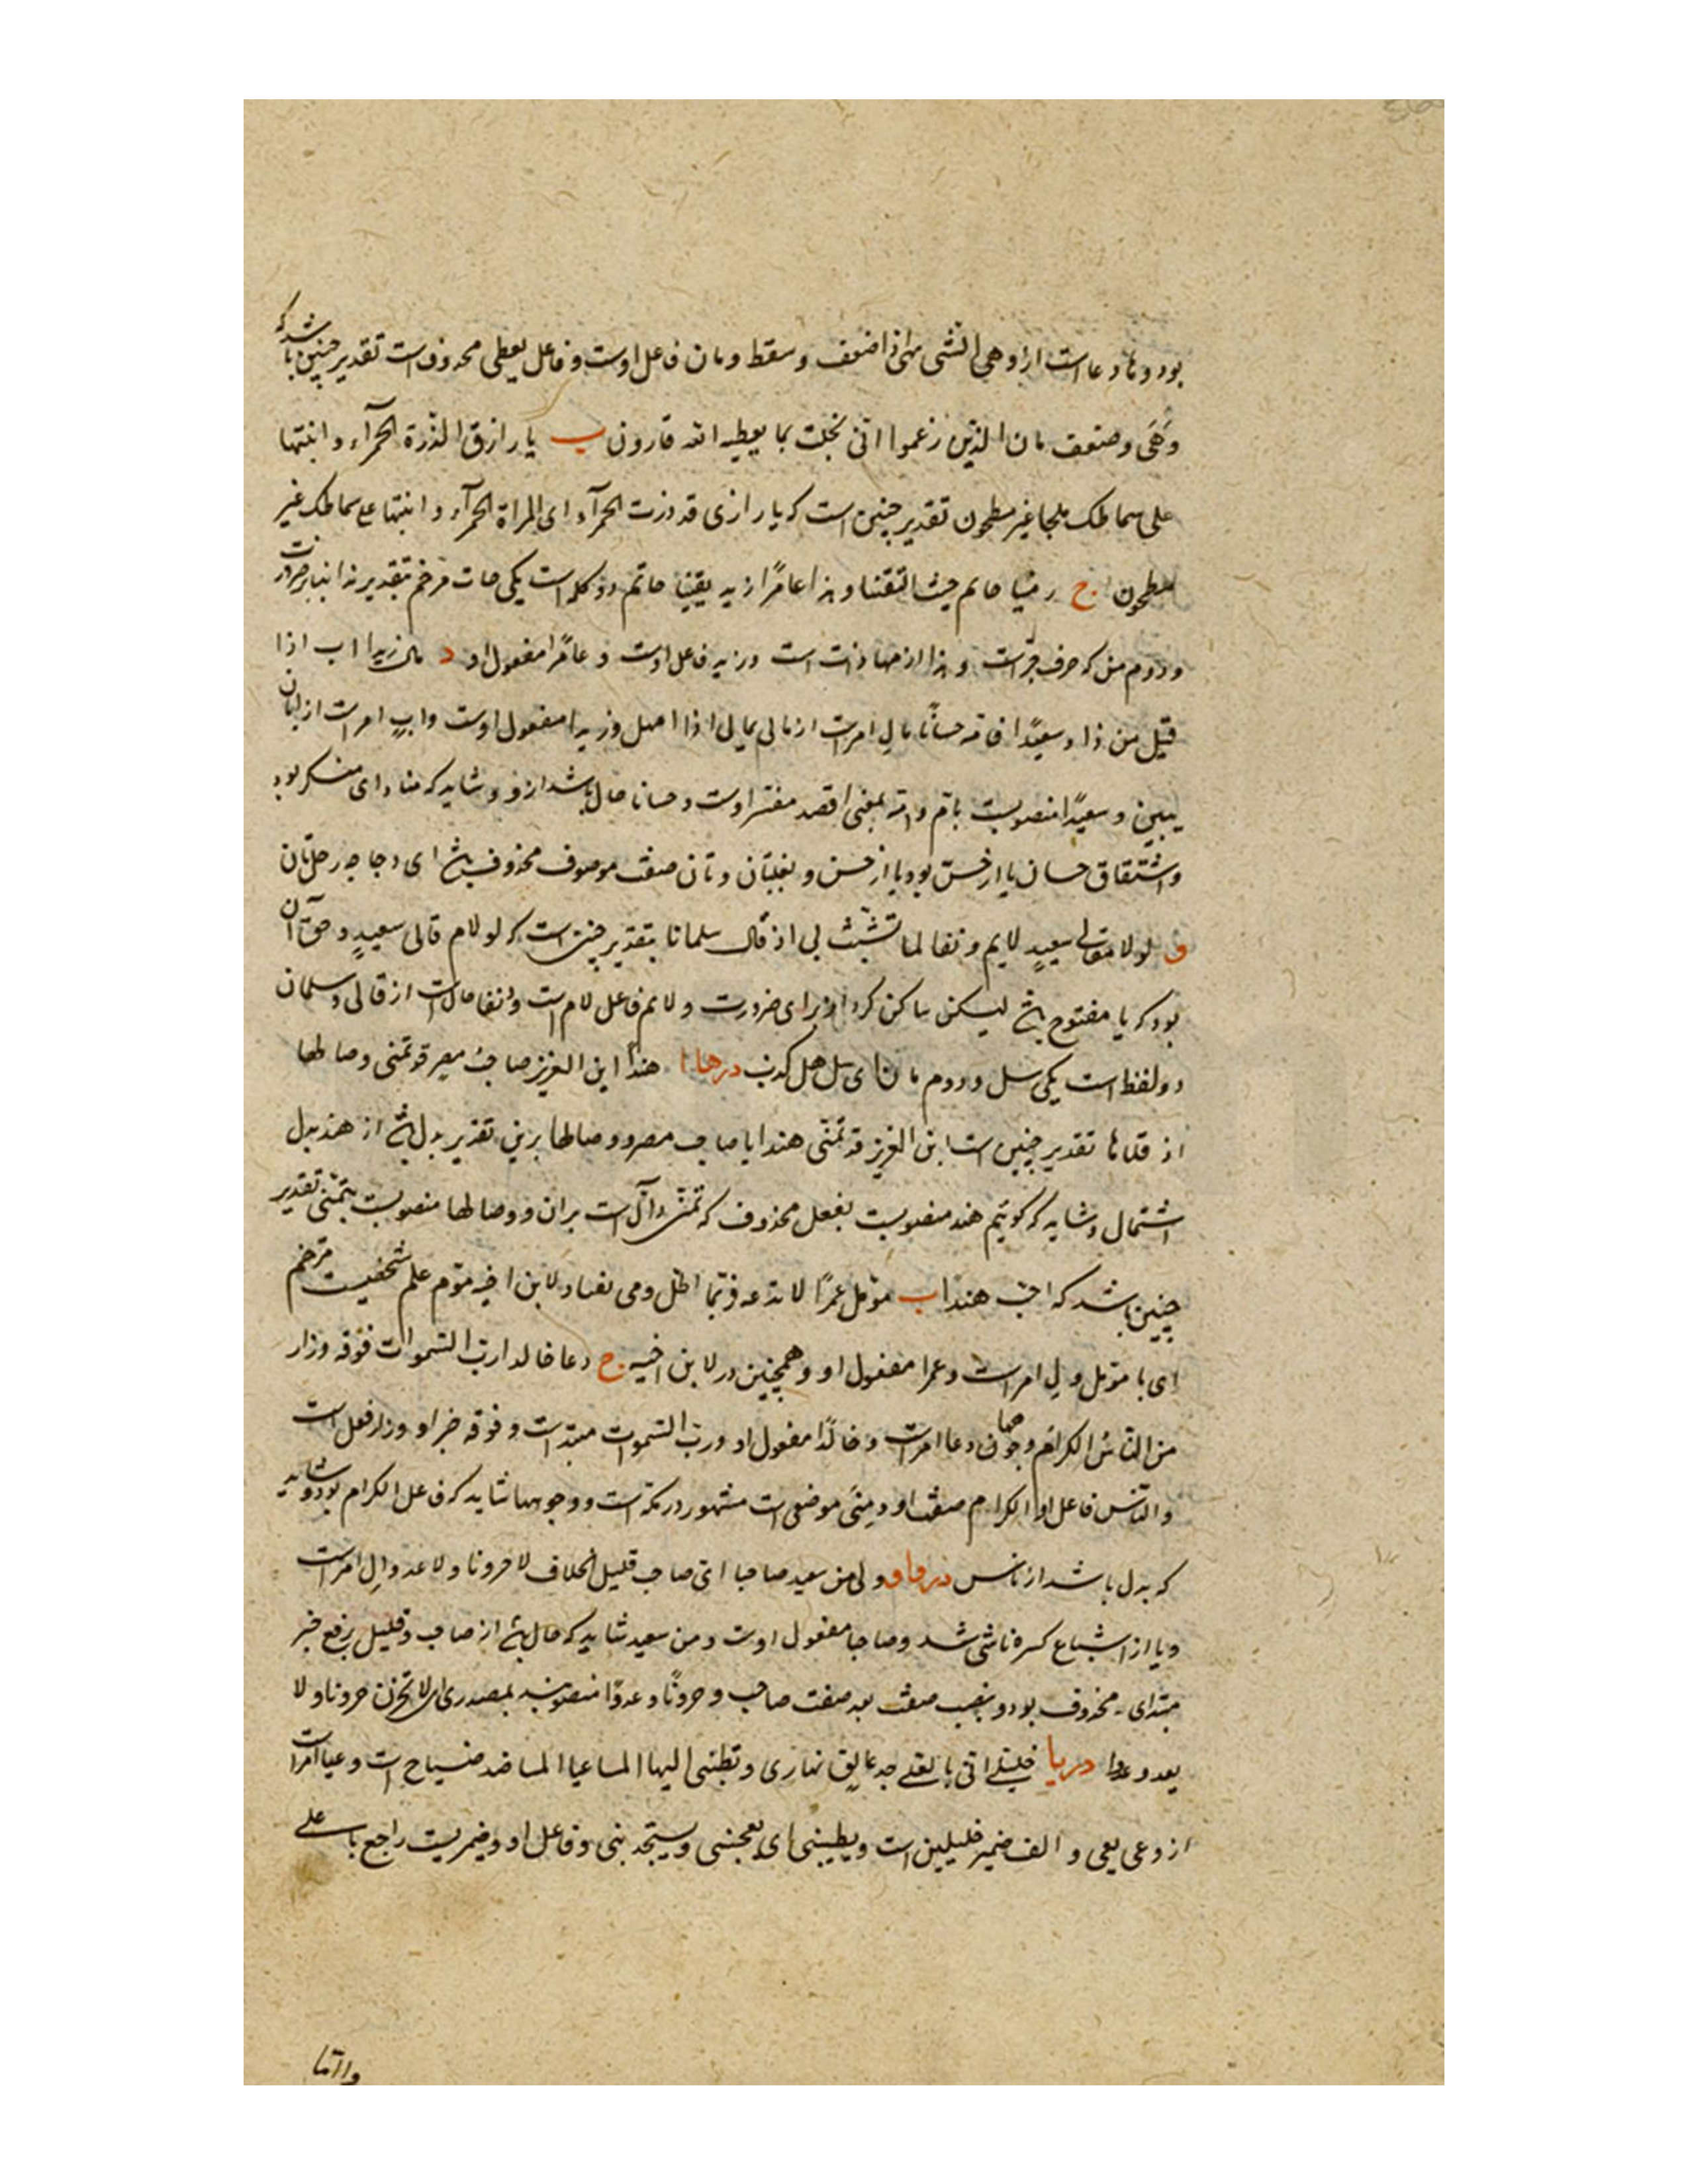 بود و ها دعا است از اوهی الشی هی اذا ضعف و سقط و مان فاعل اوست و فاعل یعطی محذوف است تقدیر چنین باشد که
وَهَی و ضعف مان الذین زعموا اننی بخلت بما یعطیه الله قارون ب یا رازق الذرة الحمرآء و ابنتها
علی سماطک ملجا غیر مطحون تقدیر چنین است که یا رازی قد ذرت الحمرآء ای المراة الحمرآء و ابنتها علی سماطک غیر
مطحون ج رمینا حاتم حیث التقینا و هذا عامرًا زید یقینا حاتم دو کلمه است یکی حات مرخم بتقدیر ندا بنابر ضرورت
و دوم من که حرف جر است و هذا از مهاذات است و زید فاعل اوست و عامرًا مفعول او د مال زیدا اب اذا
قیل من ذا و سعیدًا فاته حسانًا مال امر است از مالی یمالی اذا امهل و زیدا مفعول اوست و ابِ امر است از ابان
یبین و سعیدًا منصوبست باتم و اته بمعنی اقصد مفسر اوست و حسانا حال باشد ازو و شاید که منادای منکر بود
و اشتقاق حسان یا از حسّ بود یا از حسن و بغلتان و تان صفت موصوف محذوف باشد ای دجاجه رحلتان
و لولا مقالی سعیدٍ لایم و نفا لما تشبث بی اذ قال سلمانا بتقدیر چنین است که لو لام قالی سعیدٍ و حق آن
بود که یا مفتوح باشد لیکن ساکن کرد از برای ضرورت و لایم فاعل لام است و انفا حال است از قالی و سلمان
دو لفظ است یکی سل و دوم مان ای سل هل کذب در ها ا هندا این العزیز صاحب مصر قد تمنی وصالها
اذ قلاها تقدیر چنین است ابن العزیز قد تمنی هندا یا صاحب مصر و وصالها برین تقدیر بدل باشد از هند بدل
اشتمال و شاید که گوئیم هند منصوبست بفعل محذوف که تمنی دال است بران و وصالها منصوبست بتمنی تقدیر
چنین باشد که احب هندا ب مؤمل عمرًا لا تدعه فربما اظل ومی یفساد لابن اخیه مؤم علم شخصیست مرخم
ای یا مؤمل و لِ امر است و عمرا مفعول او و همچنین در لابن اخیه ج دعا خالدا رب السموات فوقه و زار
من الناس الکرام وجوهها دعا امر است و خالدًا مفعول او و رب السموات مبتدا است و فوقه خبر او و زار فعل است
و الناس فاعل او و الکرام صفت او و منی موضعی است مشهور در مکه است و وجوهها شاید که فاعل الکرام بود و شاید
که بدل باشد از ناس در واو و لی من سعید صاحبا ای صاحب قلیل الخلاف لا حرونا و لا عدوا لِ امر است
و یا از اشباع کسره ناشی شد و صاحبا مفعول اوست و من سعید شاید که حال باشد از صاحب و قلیل برفع خبر
مبتدای محذوف بود و بنصب صفت بعد صفت صاحب و حرونًا و عدوًا منصوبند بمصدری ای لا تحرن حرونا و لا
یعدو عدوا در یا خلیلی انی بالعلی جد عالق نهاری و تطبنی الیها المساعیا المسا ضد صباح است و عیا امر است
از وعی یعی و الف ضمیر خلیلین است و یطبینی ای یعجبنی و یستجذبنی و فاعل او و ضمیریست راجع با علی
و اما